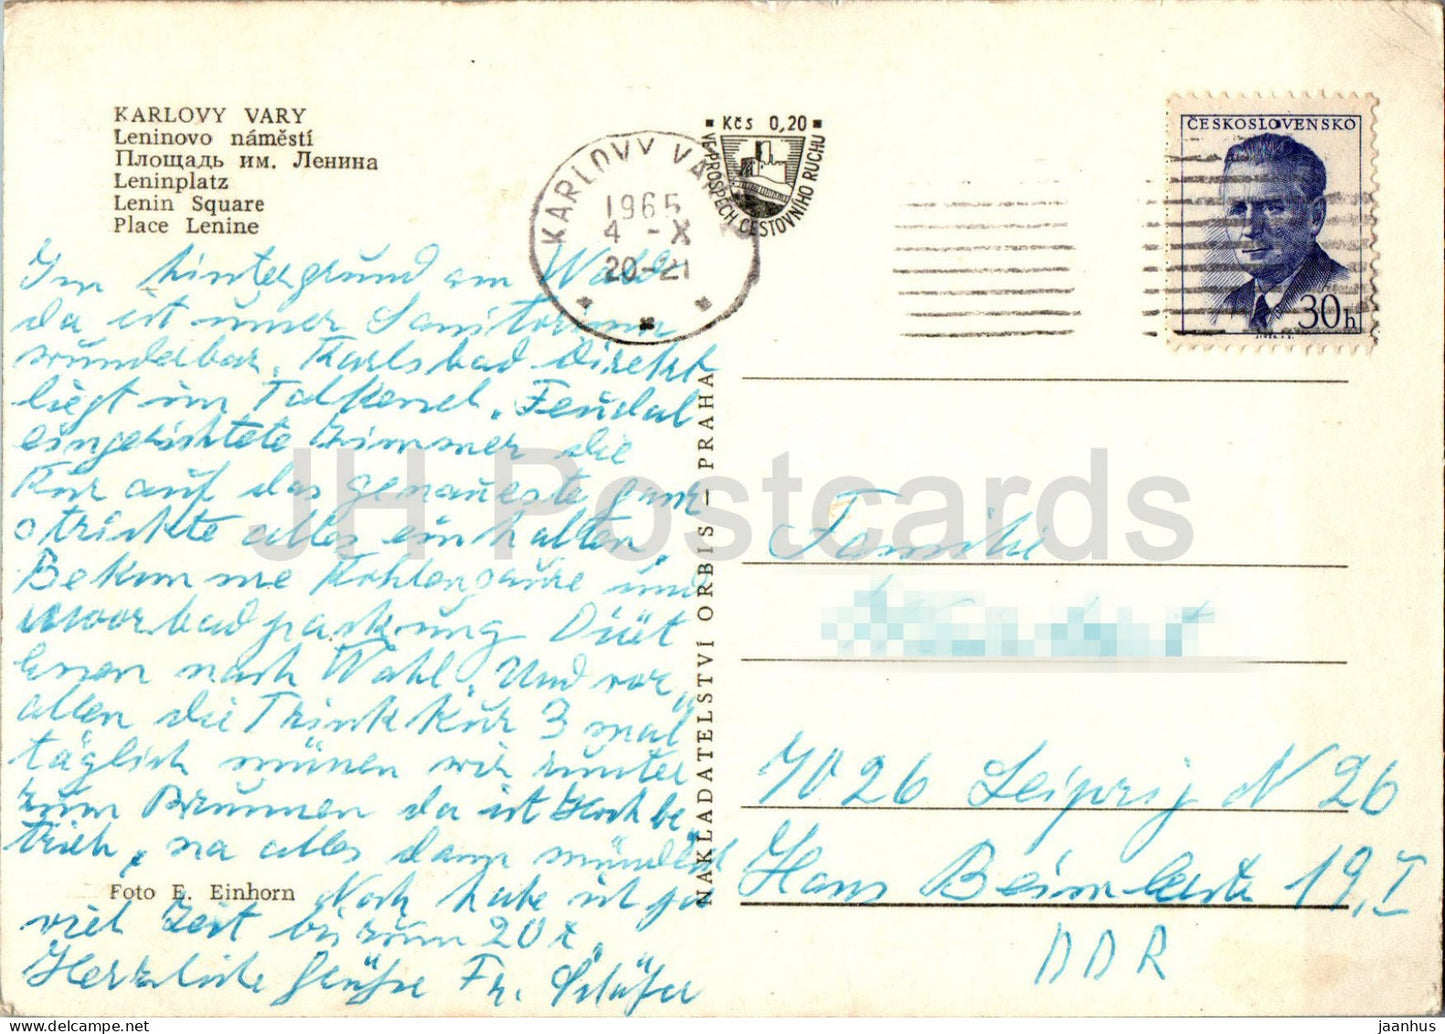 KARLOVY VARY
Leninovo náměstí
Площадь им. Ленина
Leninplatz
Lenin Square
Place Lenine
KARLOVY VARY
1965
4 -X
20-21
Kčs 0,20
VE PROSPĚCH CESTOVNÍHO RUCHU
ČESKOSLOVENSKO
30h
Im Hintergrund am Wald
da ist unser Sanitorium
wunderbar. Karlsbad direkt
liegt im Talkend. Feudal
eingerichtete Zimmer die
Kur auf das genaueste ganz
strickte alles einhalten.
Bekomme Kohlengaure und
Moorbadpackung Diät
Essen nach Wahl. Und vor
allen die Trinkkur 3 mal
täglich müssen wir runter
zum Brunnen da ist Hochbe
trieb, na alles dann mündlich
Noch habe ich ja
viel Zeit bis zum 20 X.
Herzliche Grüße Fr. Schäfer
Foto E. Einhorn
NAKLADATELSTVÍ ORBIS — PRAHA
Familie
7026 Leipzig N 26
Hans Beimlerstr 19, I
DDR
JH Postcards
jaanhus / delcampe.net